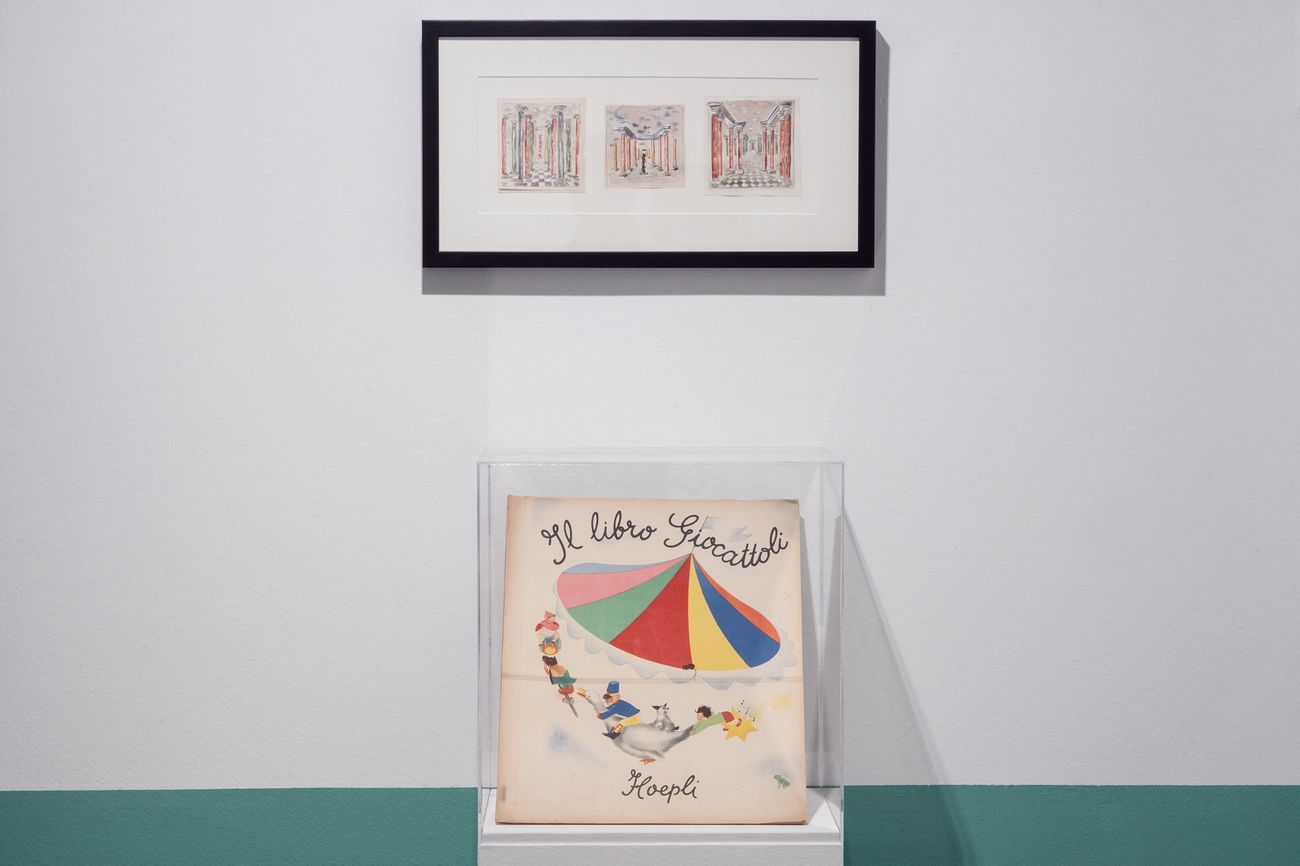 Il libro Giocattoli
Hoepli